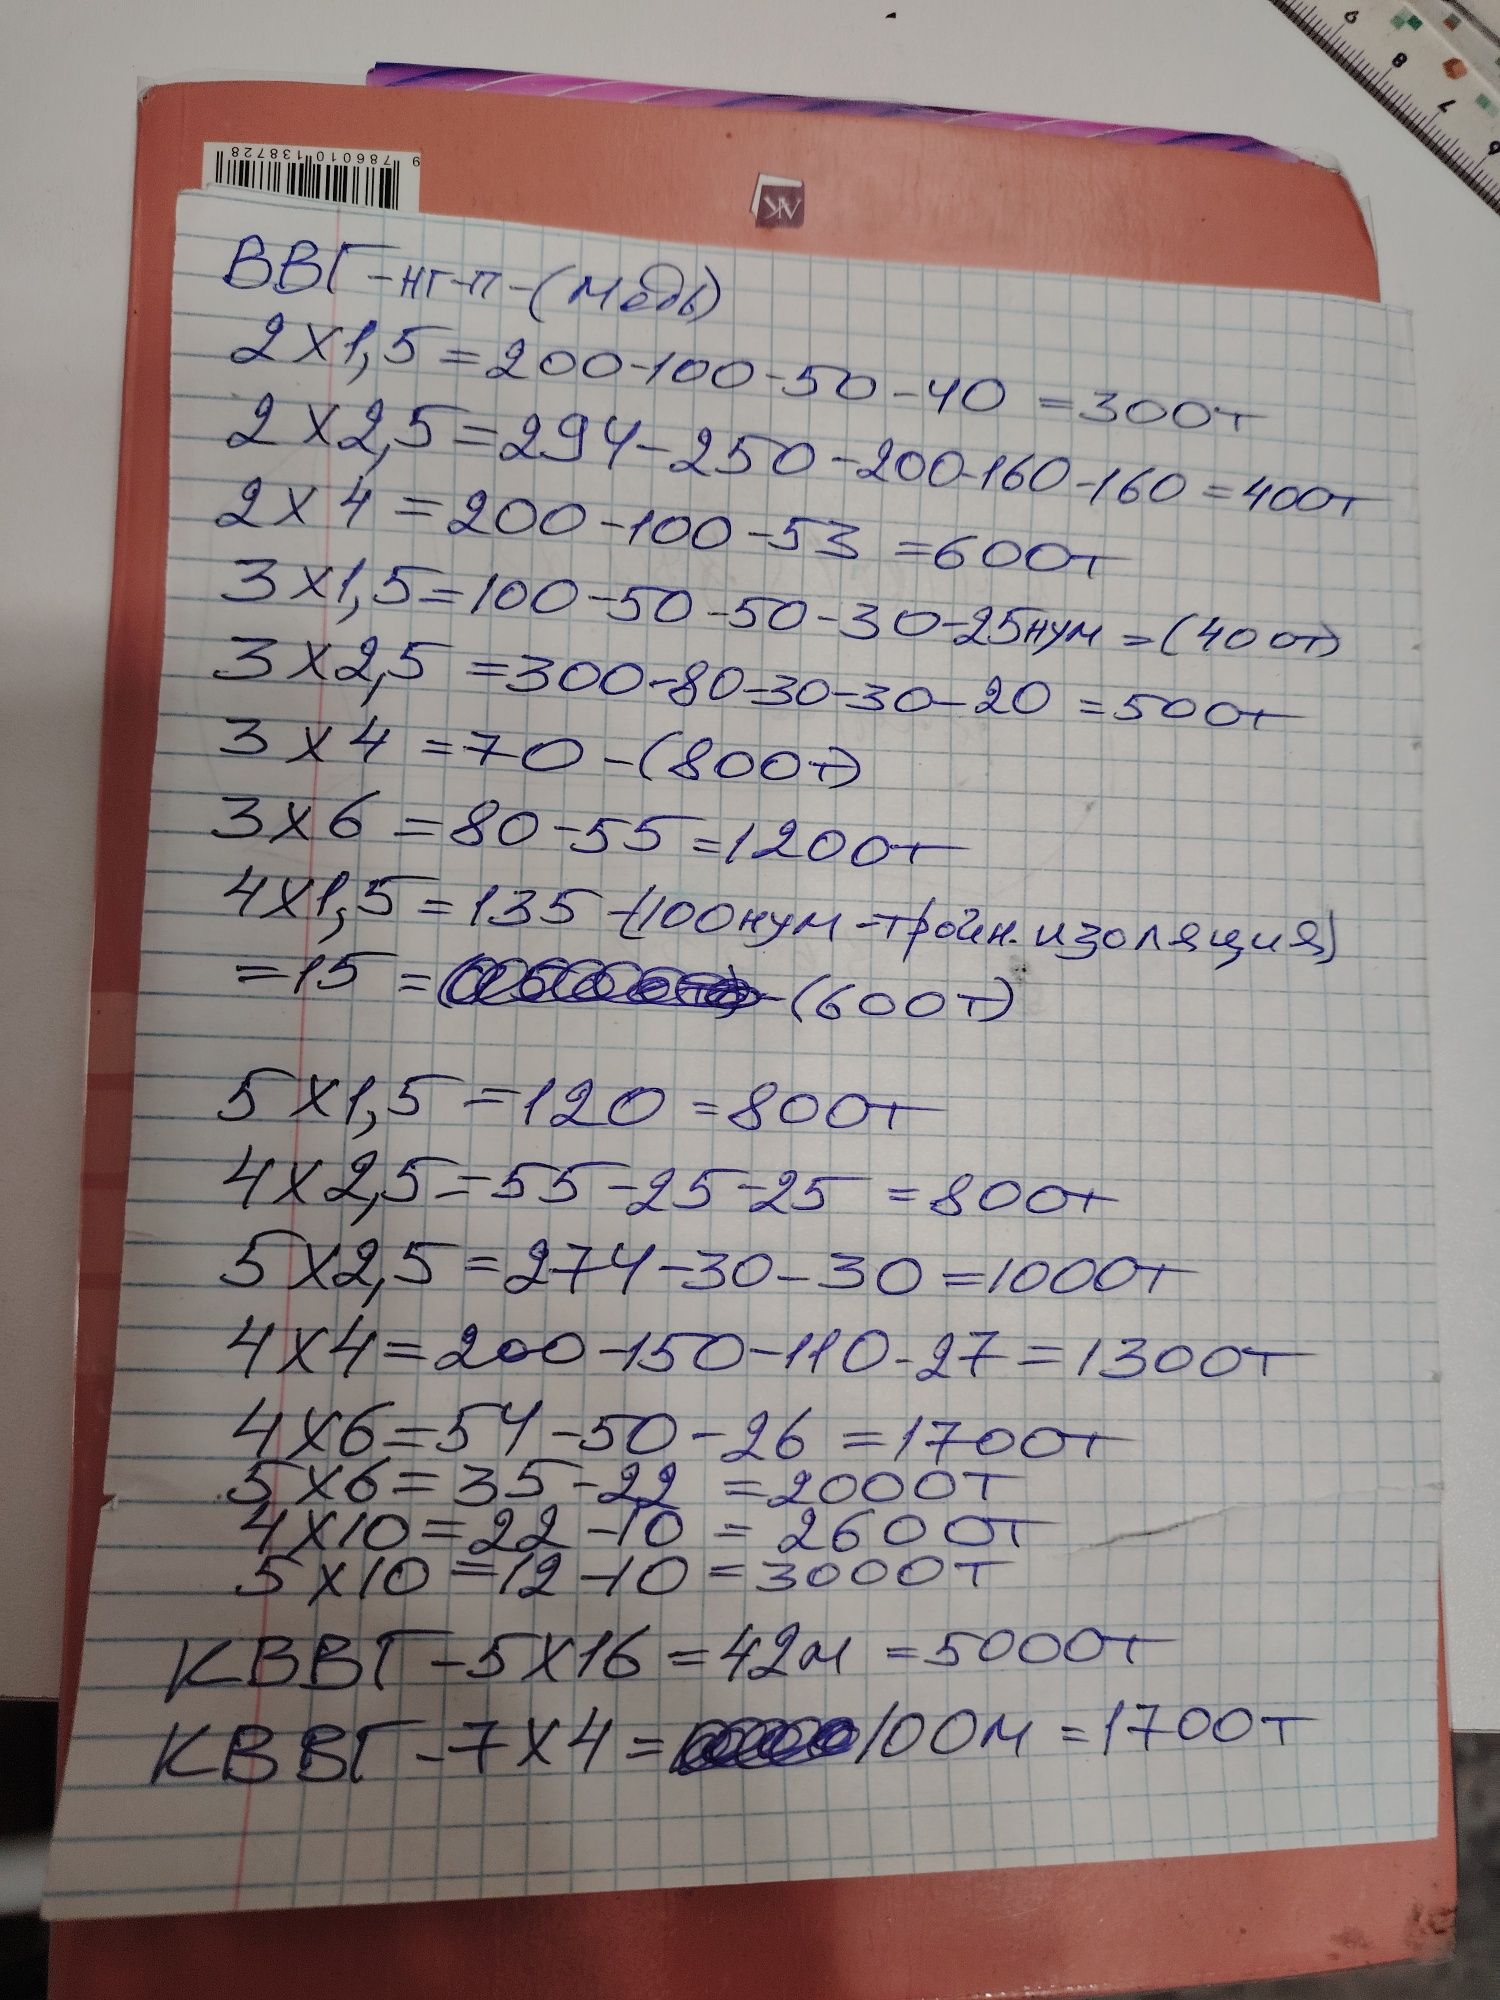 9 786010 138728
ВВГ-нг-п-(медь)
2х1,5=200-100-50-40=300т
2х2,5=294-250-200-160-160=400т
2х4=200-100-53=600т
3х1,5=100-50-50-30-25нум=(400т)
3х2,5=300-80-30-30-20=500т
3х4=70-(800т)
3х6=80-55=1200т
4х1,5=135-(100нум-тройн.изоляция)
=15=-(600т)
5х1,5=120=800т
4х2,5=55-25-25=800т
5х2,5=274-30-30=1000т
4х4=200-150-110-27=1300т
4х6=54-50-26=1700т
5х6=35-22=2000т
4х10=22-10=2600т
5х10=12-10=3000т
КВВГ-5х16=42м=5000т
КВВГ-7х4=100м=1700т
9 8 7 6